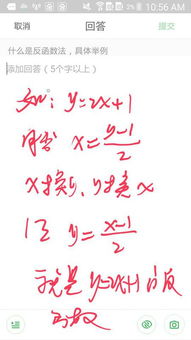 10:56 AM
取消 回答 提交
什么是反函数法，具体举例
添加回答（5个字以上）
如：y=2x+1
x=\frac{y-1}{2}
x换y、y换x
y=\frac{x-1}{2}
就是y=2x+1的反
函数